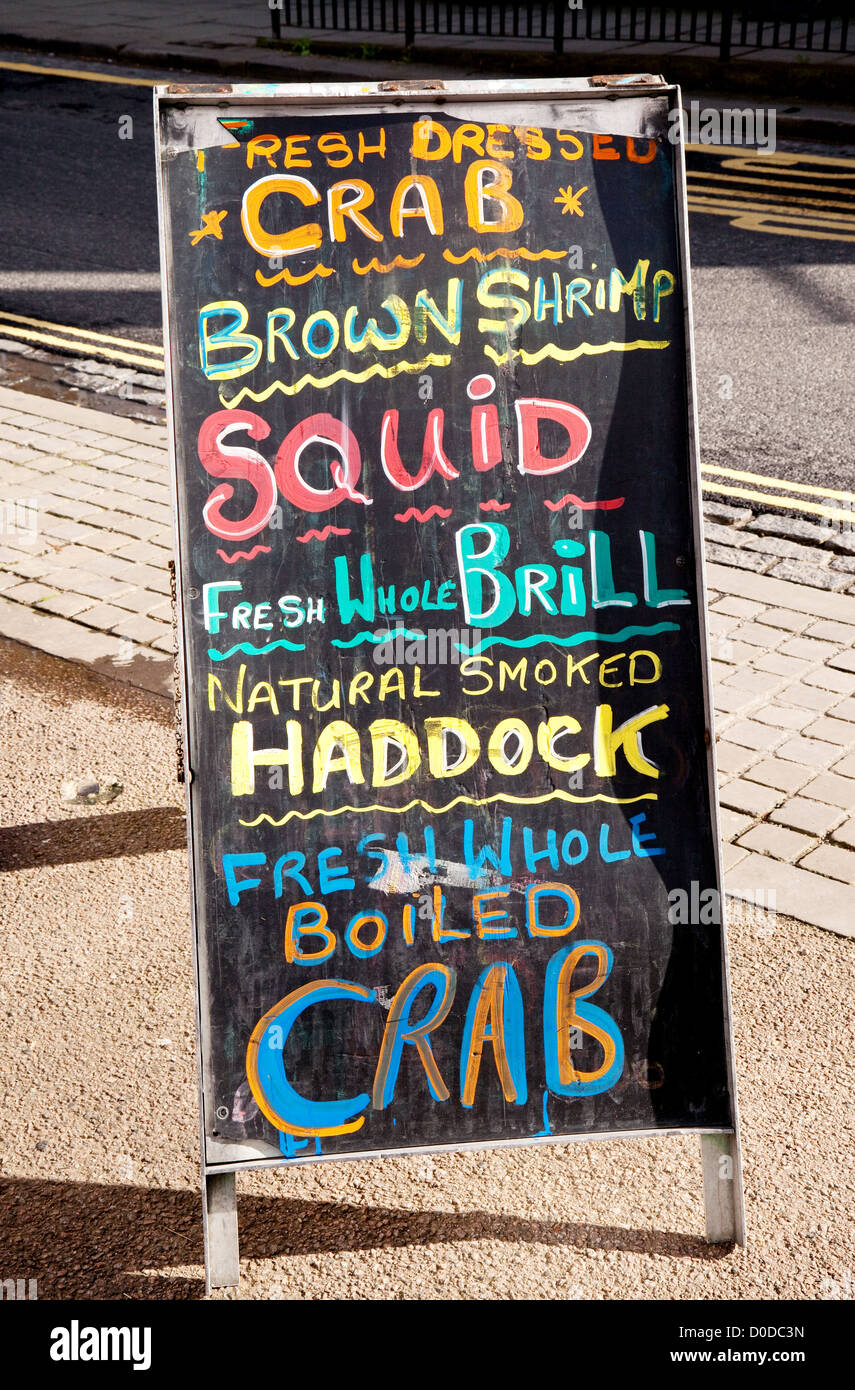 FRESH DRESSED
CRAB
BROWN SHRIMP
SQUID
FRESH WHOLE BRILL
NATURAL SMOKED
HADDOCK
FRESH WHOLE
BOILED
CRAB
alamy
Image ID: D0DC3N
www.alamy.com